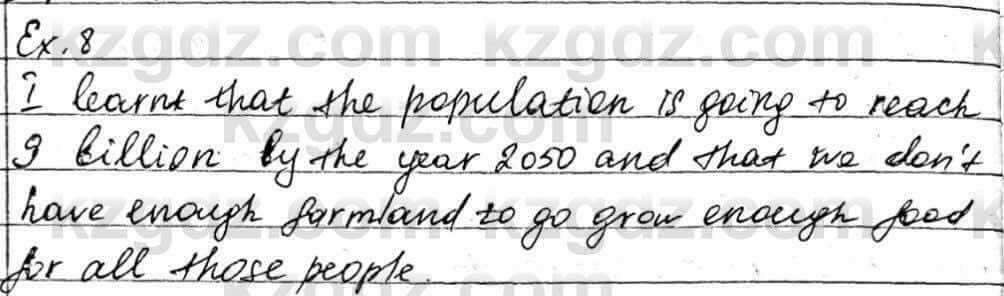 Ex. 8
I learnt that the population is going to reach
9 billion by the year 2050 and that we don't
have enough farmland to go grow enough food
for all those people.
kzgdz.com kzgdz.com